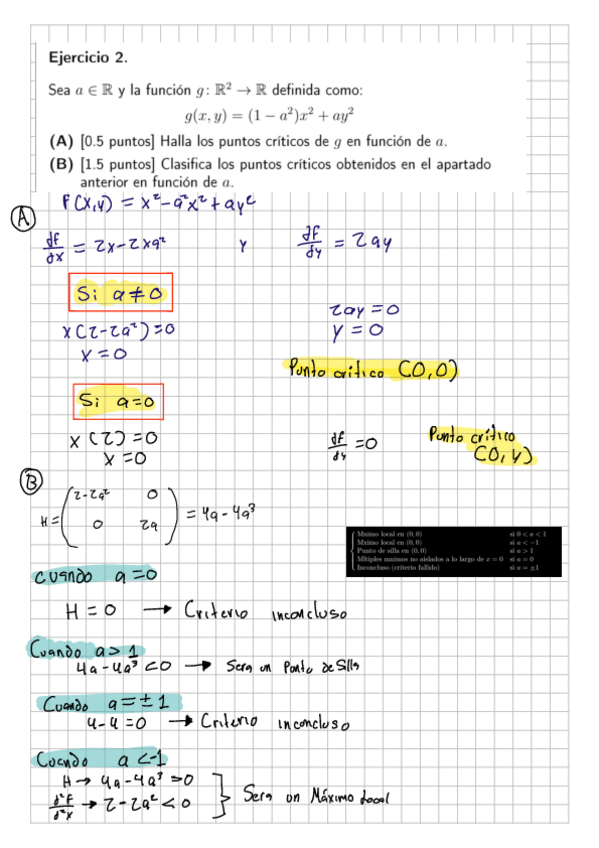 Ejercicio 2.
Sea a ∈ ℝ y la función g: ℝ² → ℝ definida como:
g(x, y) = (1 − a²)x² + ay²
(A) [0.5 puntos] Halla los puntos críticos de g en función de a.
(B) [1.5 puntos] Clasifica los puntos críticos obtenidos en el apartado
anterior en función de a.
A
F(x,y) = x² − a²x² + ay²
df/dx = 2x − 2xa² y df/dy = 2ay
Si a ≠ 0
x(2−2a²)=0 2ay = 0
x = 0 y = 0
Punto critico (0,0)
Si a=0
x (2) = 0 df/dy = 0 Punto crítico
x = 0 (0, y)
B
H = (2−2a² 0
0 2a) = 4a − 4a³
Mnimo local en (0,0) si 0 < a < 1
Mximo local en (0,0) si a < −1
Punto de silla en (0,0) si a > 1
Mltiples mnimos no aislados a lo largo de x = 0 si a = 0
Inconcluso (criterio fallido) si a = ±1
cuando a=0
H = 0 → Criterio inconcluso
Cuando a > 1
4a − 4a³ < 0 → Sera un Punto de Silla
Cuando a = ± 1
4−4 = 0 → Criterio inconcluso
Cuando a <−1
H → 4a − 4a³ > 0
d²F/d²x → 2 − 2a² < 0 } Sera un Máximo Local